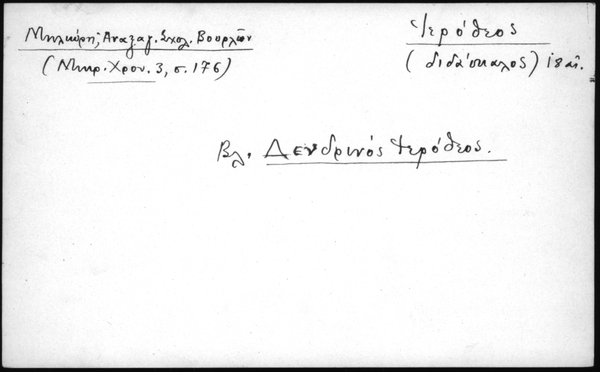 Μηλιώρη, Αναξαγ. Σχολ. Βουρλῶν
(Μικρ. Χρον. 3, σ. 176)
Ἱερόθεος
(διδάσκαλος) 18 αἰ.
Βλ. Δενδρινός Ἱερόθεος.